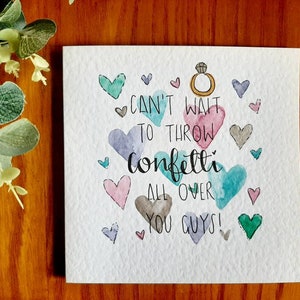 CAN'T WAIT
TO THROW
confetti
ALL OVER
YOU GUYS!